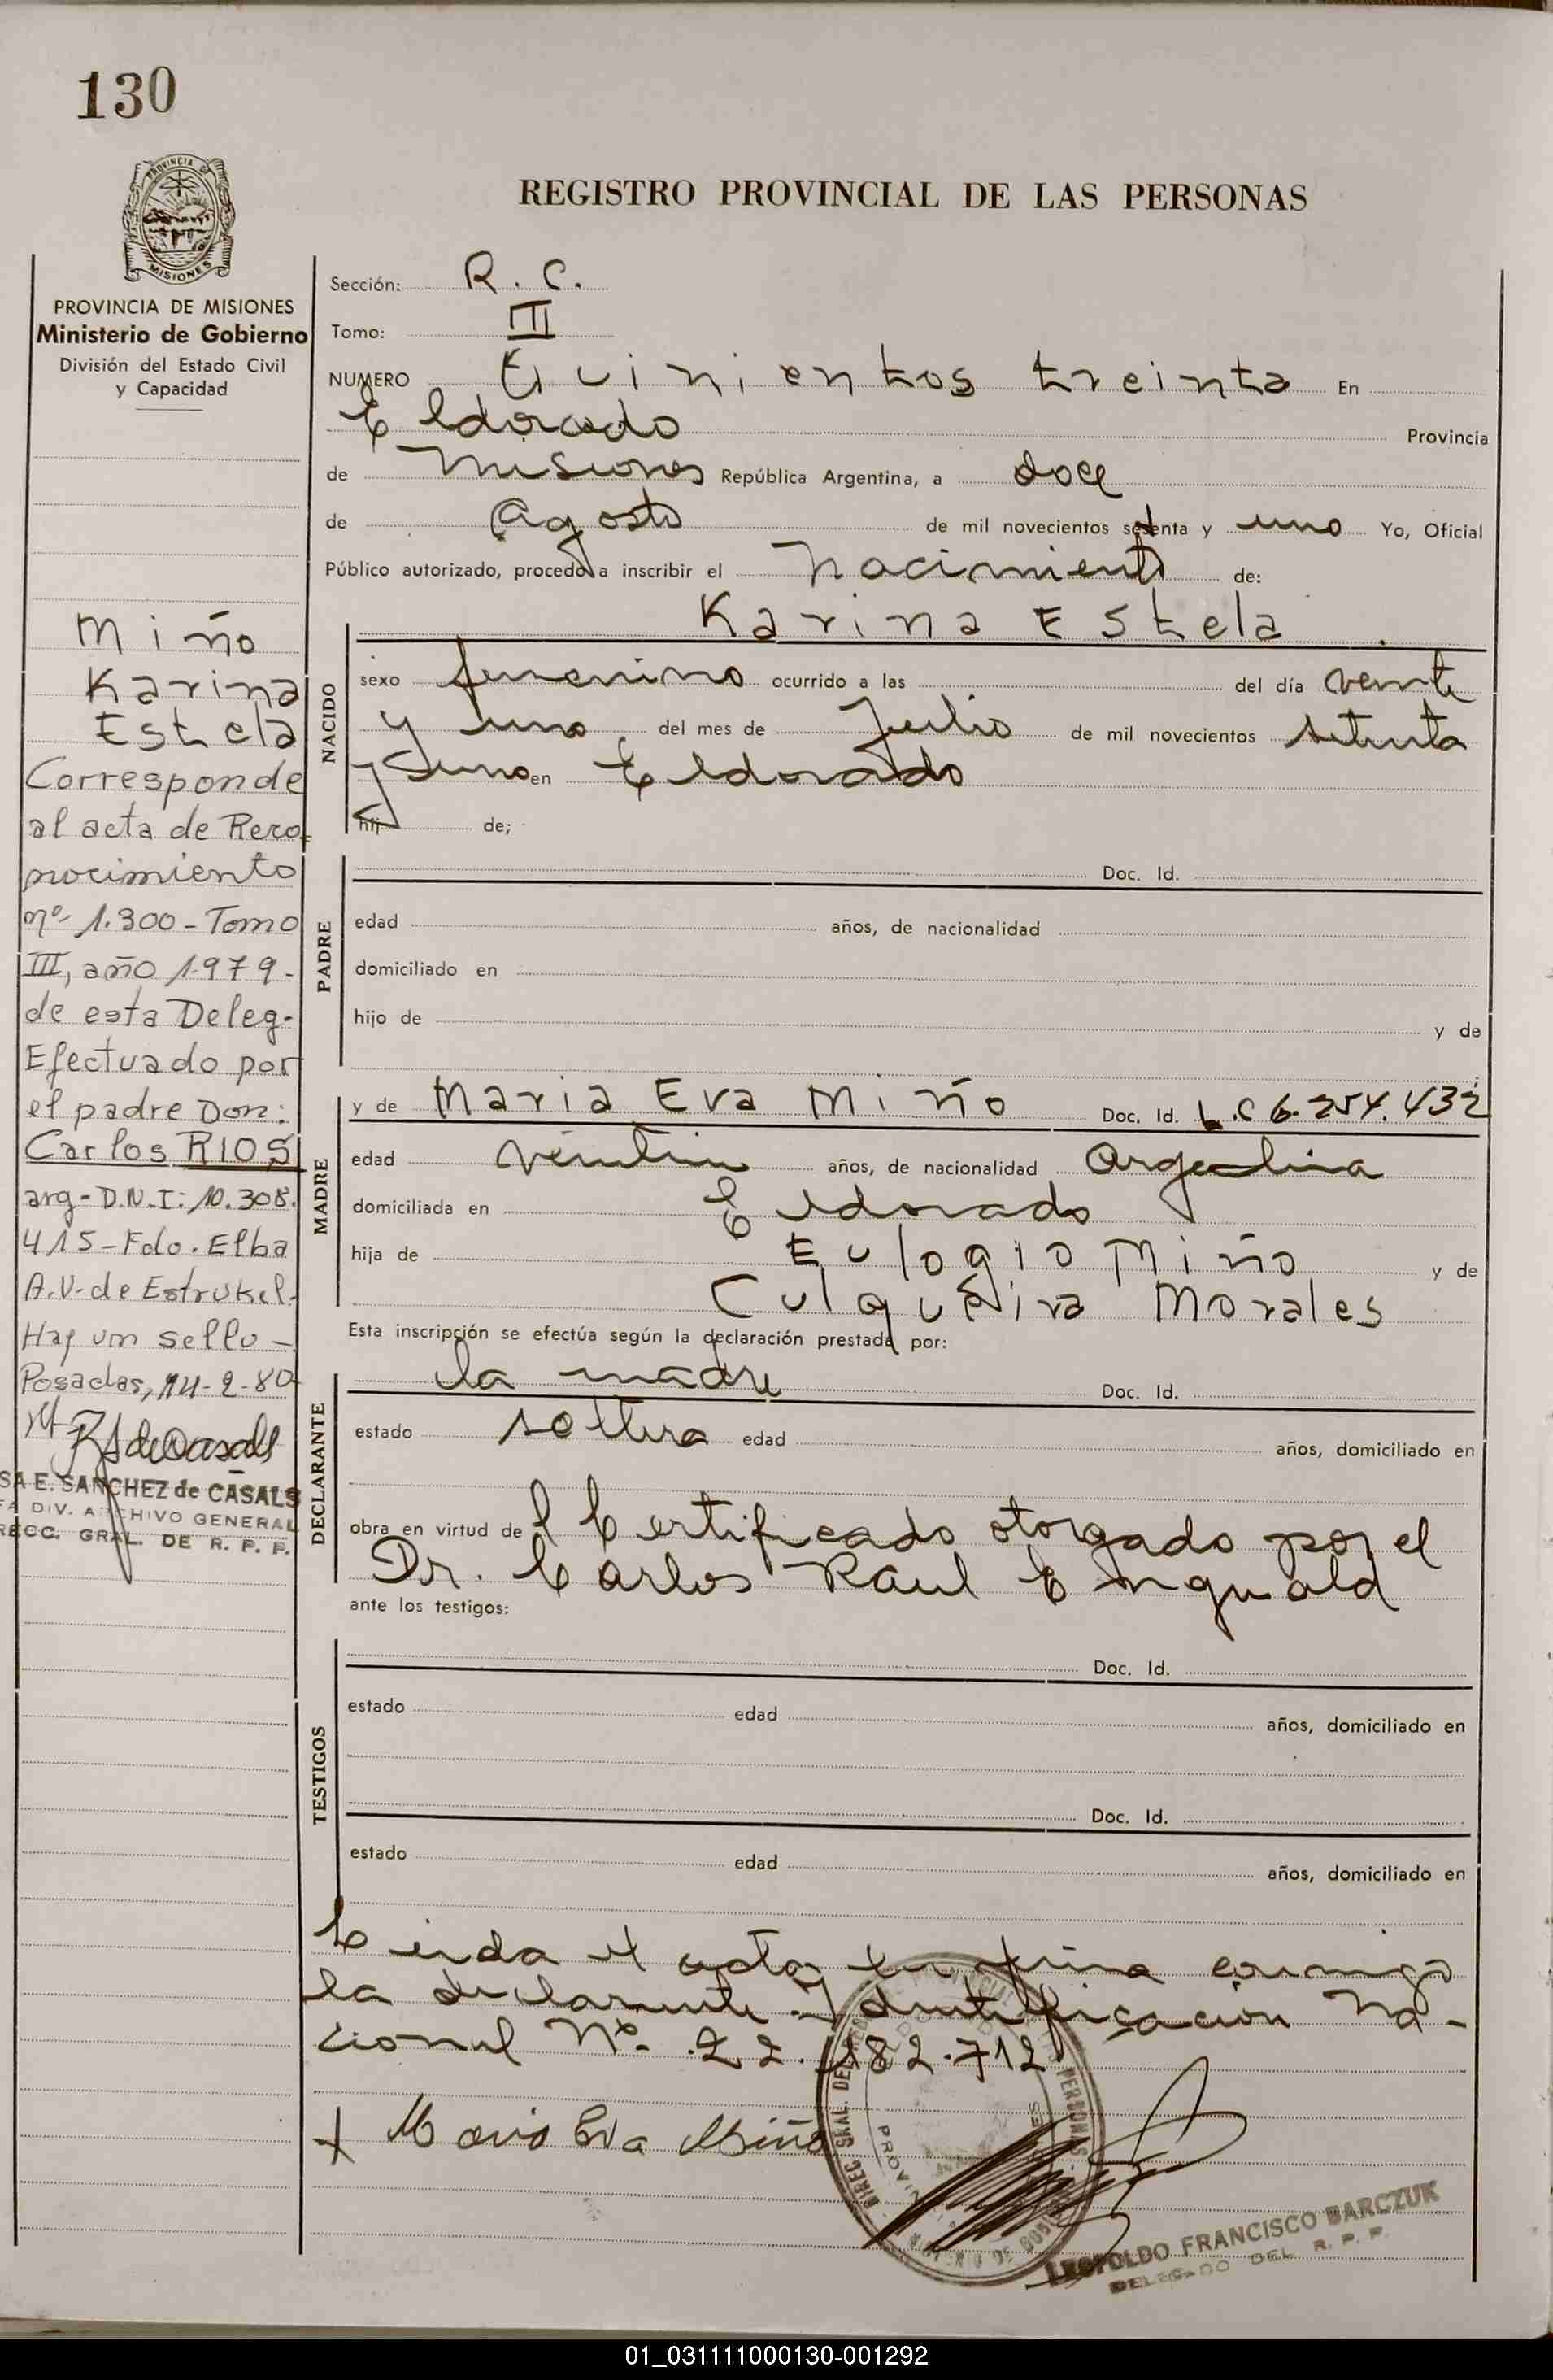 130
PROVINCIA
MISIONES
PROVINCIA DE MISIONES
Ministerio de Gobierno
División del Estado Civil
y Capacidad
REGISTRO PROVINCIAL DE LAS PERSONAS
Sección: R. C.
Tomo: III
NUMERO Quinientos treinta En
Eldorado Provincia
de Misiones República Argentina, a doce
de Agosto de mil novecientos setenta y uno Yo, Oficial
Público autorizado, procedo a inscribir el Nacimiento de:
Karina Estela
NACIDO
sexo femenino ocurrido a las del día veinte
y uno del mes de Julio de mil novecientos setenta
y uno en Eldorado
hij de;
PADRE
Doc. Id.
edad años, de nacionalidad
domiciliado en
hijo de y de
MADRE
y de Maria Eva Miño Doc. Id. L.C 6.254.432
edad años, de nacionalidad Argentina
domiciliada en Eldorado
hija de Eulogio Miño y de
Morales
Esta inscripción se efectúa según la declaración prestada por:
DECLARANTE
la madre Doc. Id.
estado soltera edad años, domiciliado en
obra en virtud del Certificado otorgado por el
Dr. Carlos Raul
ante los testigos:
TESTIGOS
Doc. Id.
estado edad años, domiciliado en
Doc. Id.
estado edad años, domiciliado en
Leida el acta, la firma conmigo
la declarante. Identificación Na-
cional Nº. 22.182.712
Maria Eva Miño
LEOPOLDO FRANCISCO BARCZUK
DELEGADO DEL R. P. P.
Miño
Karina
Estela
Corresponde
al acta de Reco
nocimiento
nº 1.300 - Tomo
III, año 1979-
de esta Deleg-
Efectuado por
el padre Don:
Carlos RIOS
arg - D.N.I: 10.308.
415 - Fdo. Elba
A.V. de Estrukel-
Hay un sello -
Posadas, 14-2-80
SA E. SANCHEZ de CASALS
FA DIV. ARCHIVO GENERAL
RECC. GRAL. DE R. P. P.
01_031111000130-001292